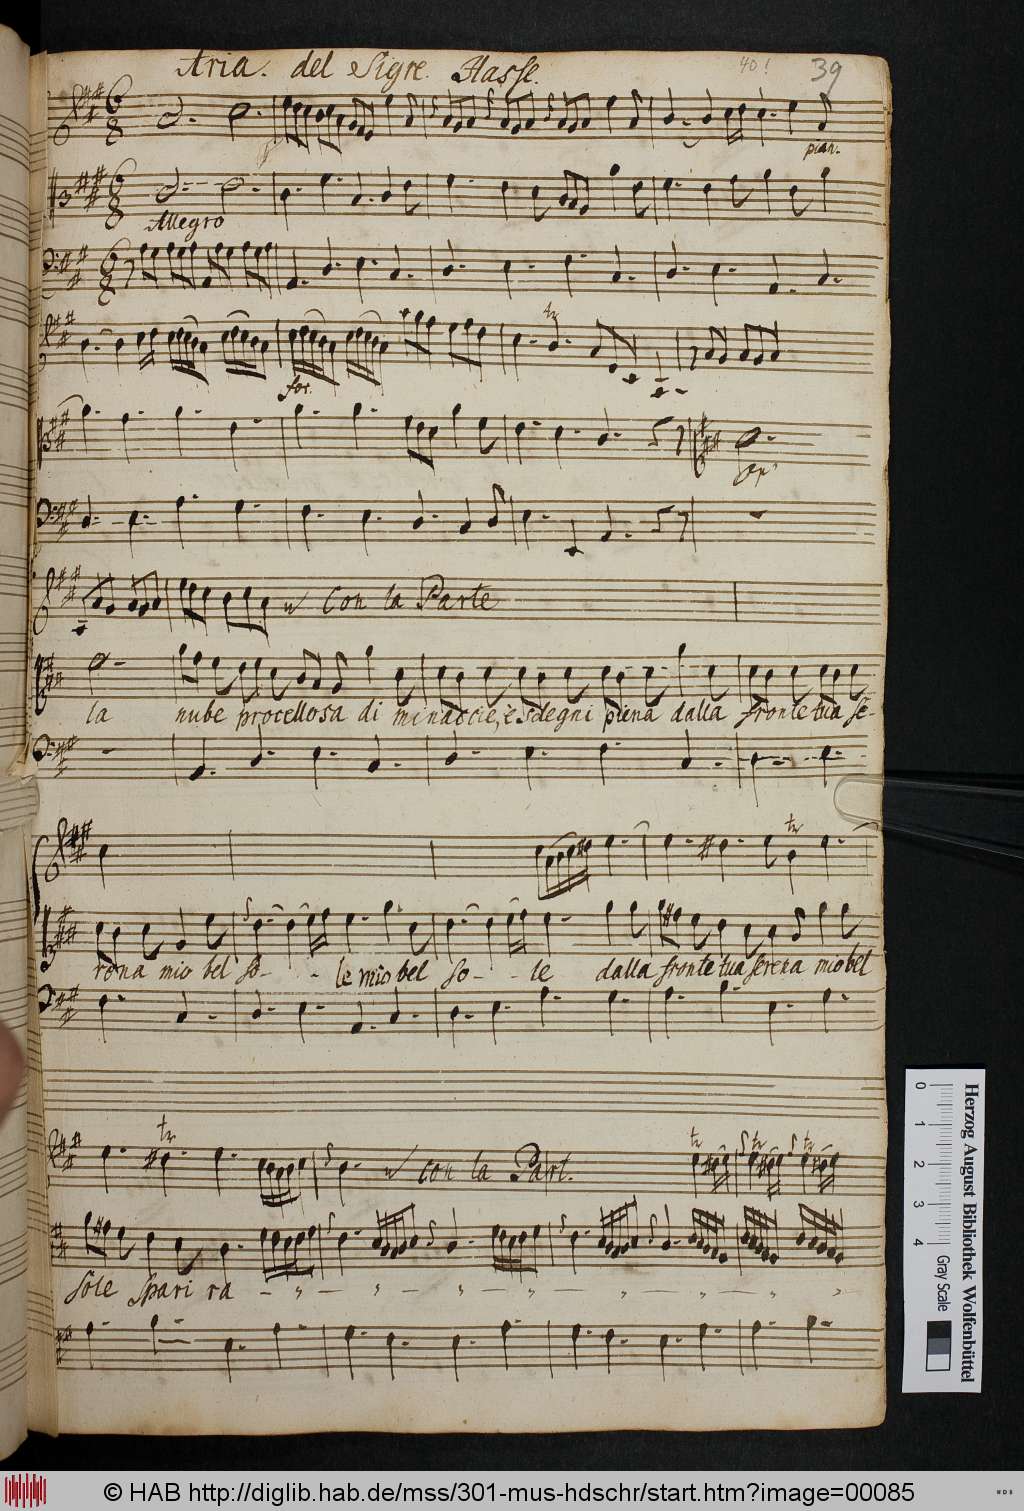 Aria. del Sigre. Hasse.
40!
39
pian.
Allegro
for.
Con la Parte
la nube procellosa di minaccie, e sdegni piena dalla fronte tua se-
rena mio bel so- - - le mio bel so - - le dalla fronte tua serena mio bel
con la Part.
sole spari ra
0 1 2 3 4
Gray Scale
Herzog August Bibliothek Wolfenbüttel
© HAB http://diglib.hab.de/mss/301-mus-hdschr/start.htm?image=00085
WDB